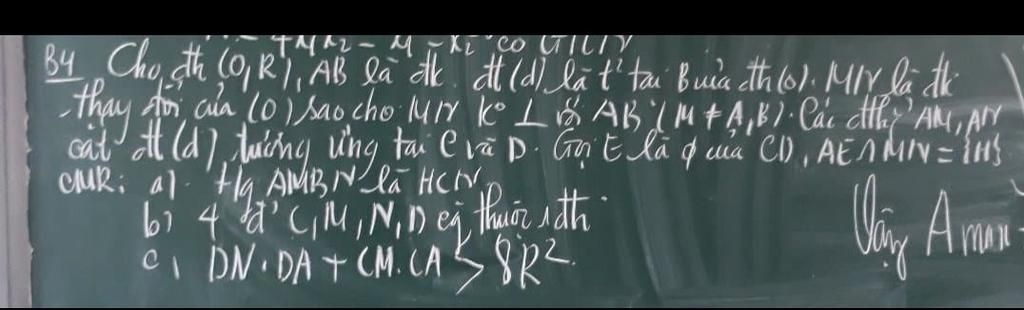 B4 Cho đth (O,R), AB là đk. đt (d) là t² tại B của đth (o). MN là đk
thay đổi của (O) sao cho MN k° ⊥ với AB (M ≠ A,B). Các đth² AM, AN
cắt đt (d) tương ứng tại C và D. Gọi E là ∅ của CD, AE ∩ MN = {H}
CMR: a). Hg AMBN là HCN
b) 4 đ² C,M,N,D cg thuộc 1 đth
c, DN.DA + CM.CA > 8R².
Vậy A max